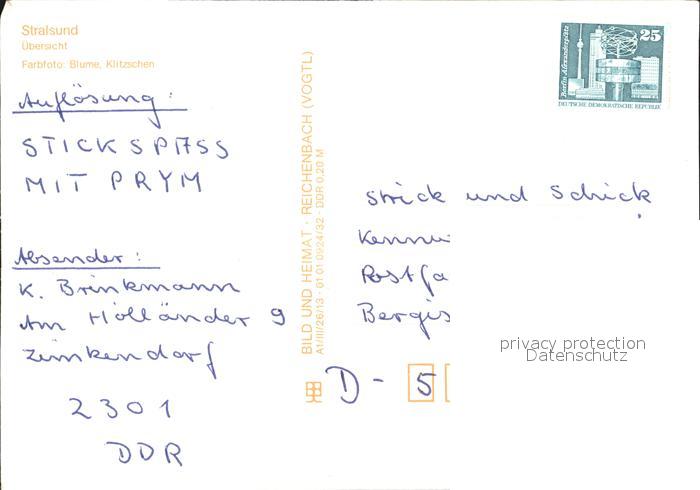 Stralsund
Übersicht
Farbfoto: Blume, Klitzschen
Auflösung:
STICKSPASS
MIT PRYM
Absender:
K. Brinkmann
Am Holländer 9
Zimkendorf
2301
DDR
BILD UND HEIMAT · REICHENBACH (VOGTL)
A1/III/26/13 · 01 01 0924/32 · DDR 0,20 M
Berlin, Alexanderplatz
25
DEUTSCHE DEMOKRATISCHE REPUBLIK
Strick und Schick
Kennw
Postfa
Bergis
D - 5
privacy protection
Datenschutz